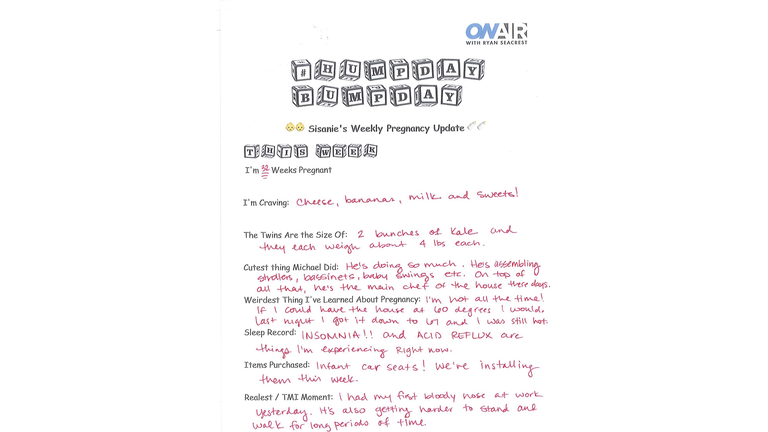 ON AIR
WITH RYAN SEACREST
#HUMPDAY
BUMPDAY
Sisanie's Weekly Pregnancy Update
THIS WEEK
I'm 32 Weeks Pregnant
I'm Craving: Cheese, bananas, milk and sweets!
The Twins Are the Size Of: 2 bunches of Kale and
they each weigh about 4 lbs each.
Cutest thing Michael Did: He's doing so much. He's assembling
strollers, bassinets, baby swings etc. On top of
all that, he's the main chef of the house these days.
Weirdest Thing I've Learned About Pregnancy: I'm hot all the time!
If I could have the house at 60 degrees I would.
Last night I got it down to 67 and I was still hot.
Sleep Record: INSOMNIA!! and ACID REFLUX are
things I'm experiencing Right now.
Items Purchased: Infant car seats! We're installing
them this week.
Realest / TMI Moment: I had my first bloody nose at work
yesterday. It's also getting harder to stand and
walk for long periods of time.